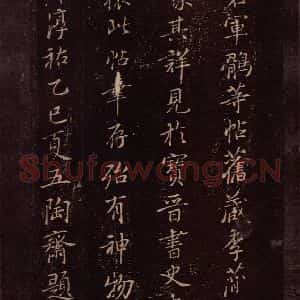 右軍鶻等帖舊藏李蕳
家其詳見於寶晉書史
振此帖筆存殆有神物
淳祐乙巳夏五陶齋題
Shufawang.CN